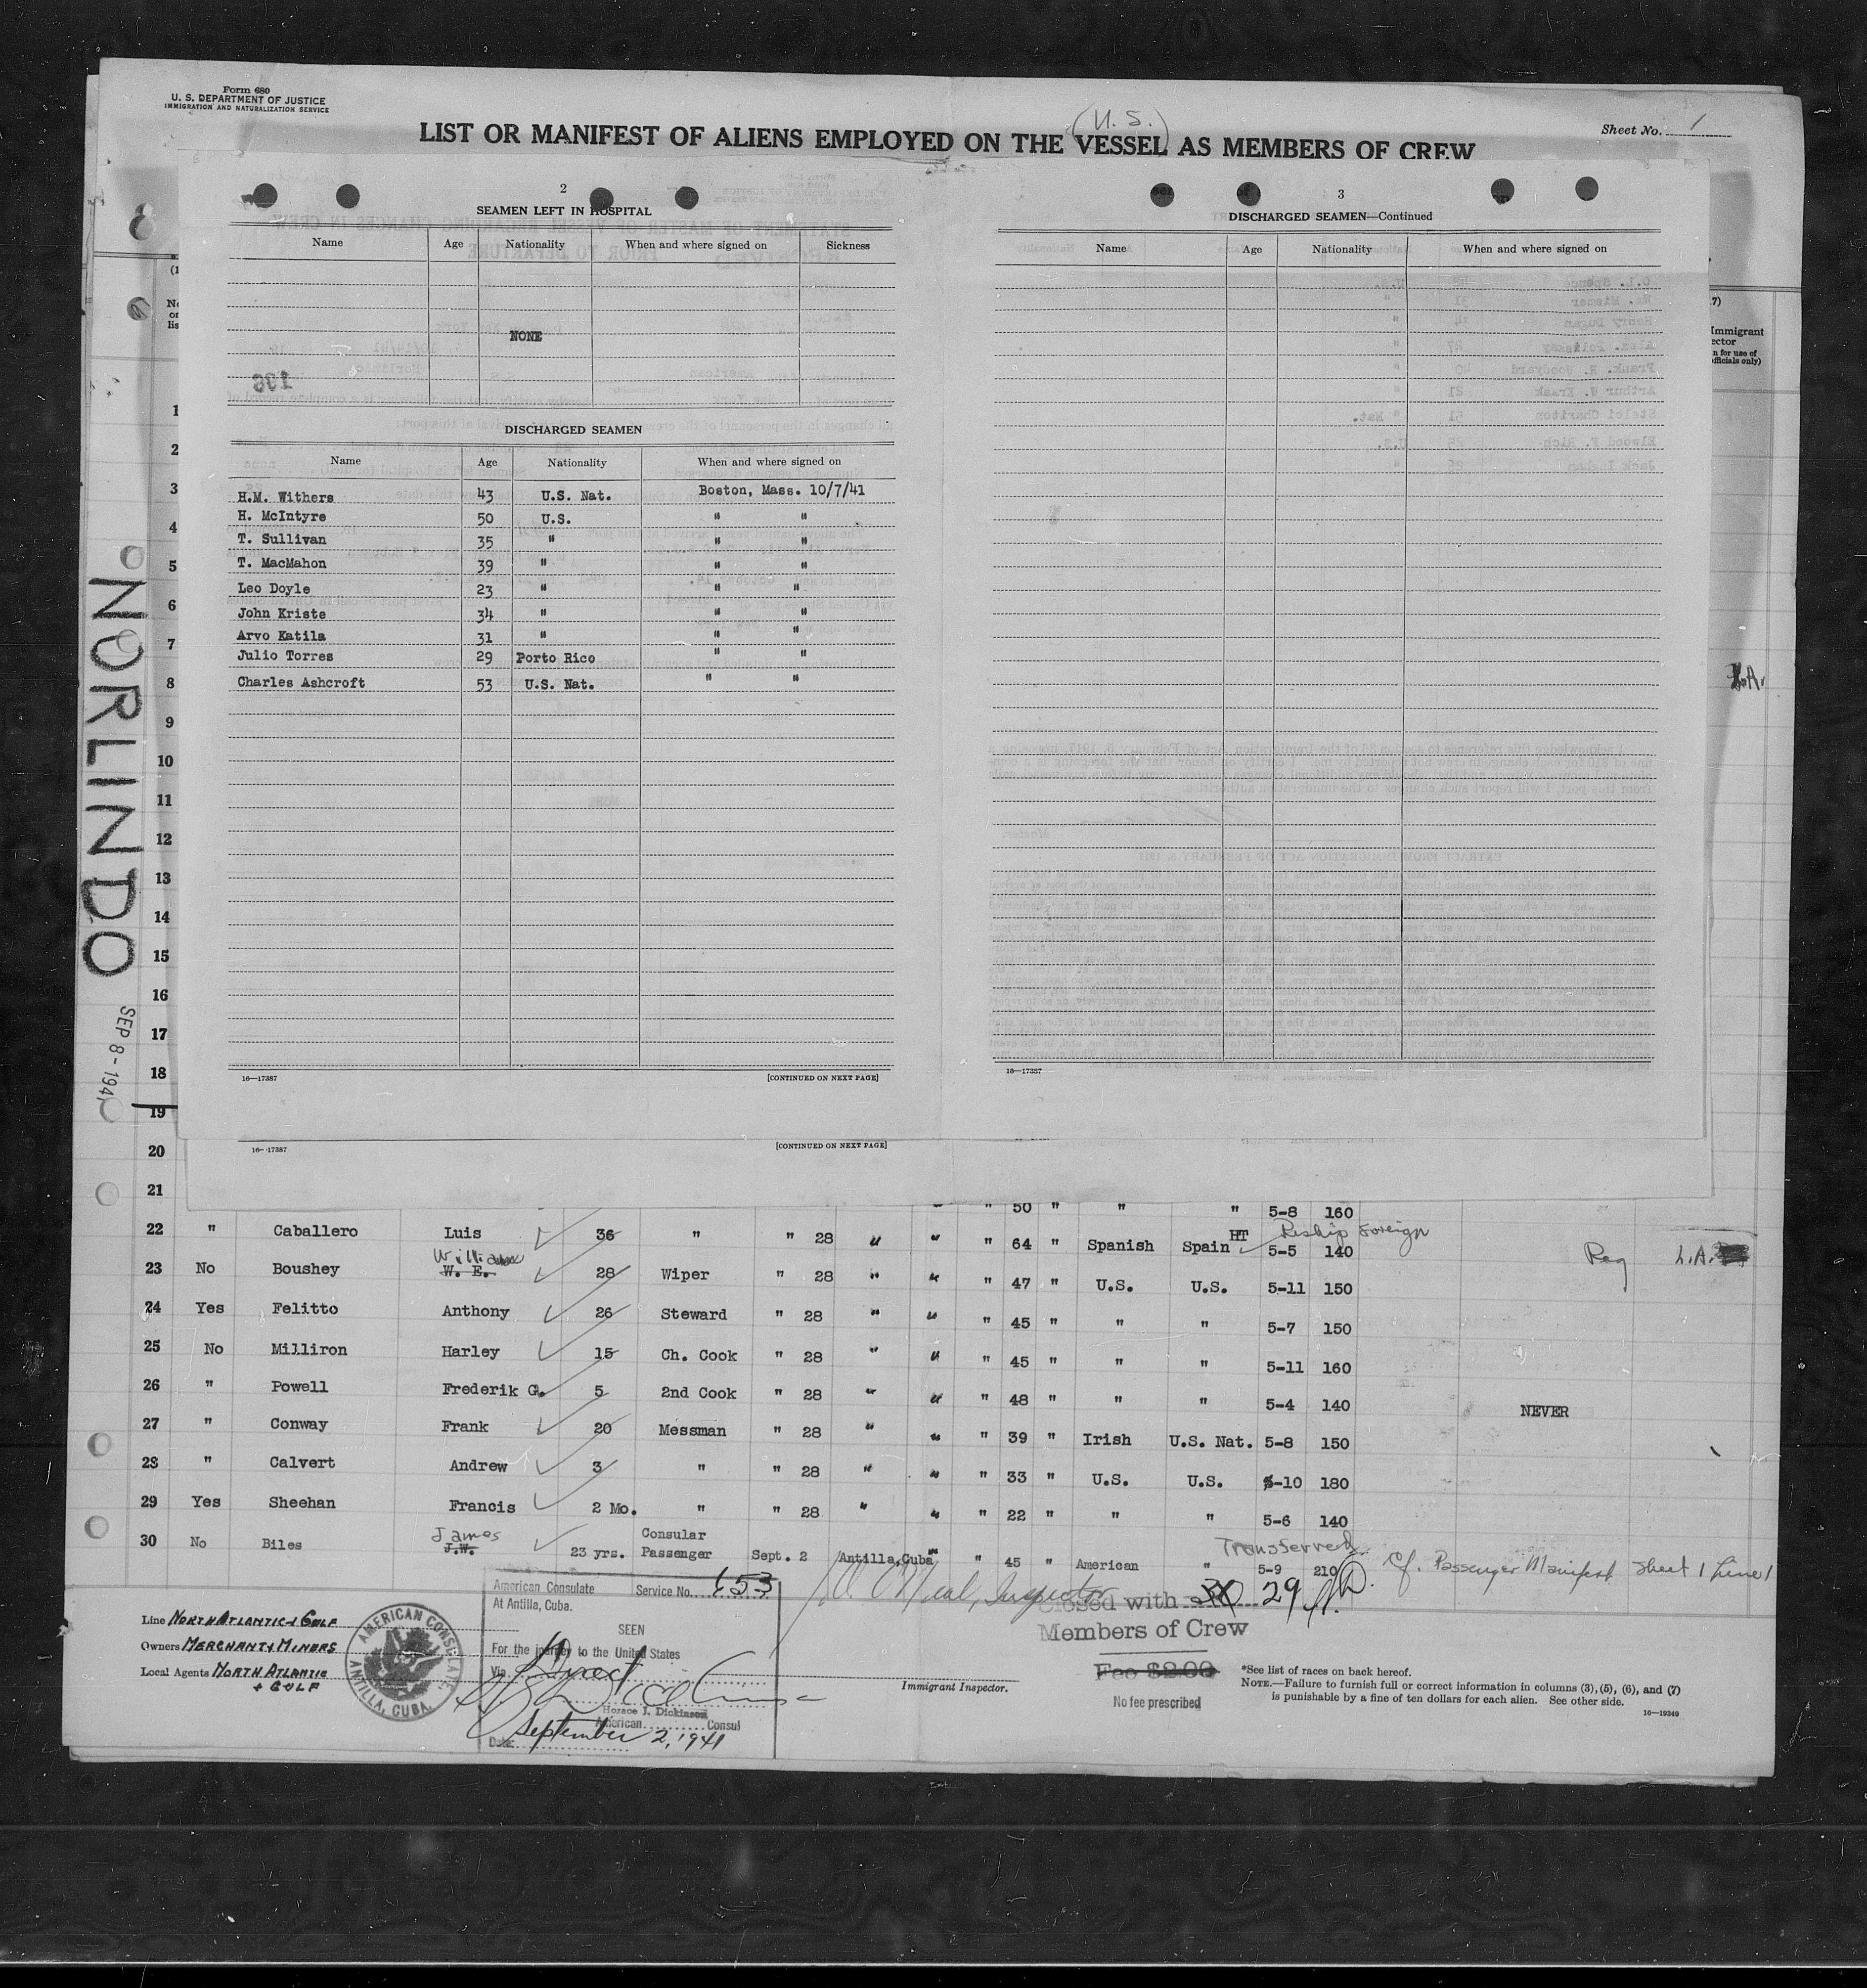 Form 680
U. S. DEPARTMENT OF JUSTICE
IMMIGRATION AND NATURALIZATION SERVICE
(U. S.)
Sheet No. 1
LIST OR MANIFEST OF ALIENS EMPLOYED ON THE VESSEL AS MEMBERS OF CREW
2
SEAMEN LEFT IN HOSPITAL
Name Age Nationality When and where signed on Sickness
NONE
DISCHARGED SEAMEN
Name Age Nationality When and where signed on
H.M. Withers 43 U.S. Nat. Boston, Mass. 10/7/41
H. McIntyre 50 U.S. " "
T. Sullivan 35 " " "
T. MacMahon 39 " " "
Leo Doyle 23 " " "
John Kriste 34 " " "
Arvo Katila 31 " " "
Julio Torres 29 Porto Rico " "
Charles Ashcroft 53 U.S. Nat. " "
16—17387 [CONTINUED ON NEXT PAGE]
16—17387 [CONTINUED ON NEXT PAGE]
3
DISCHARGED SEAMEN—Continued
Name Age Nationality When and where signed on
16—17387
7)
Immigrant
ector
n for use of
officials only)
NORLINDO
SEP 8 - 1941
1
2
3
4
5
6
7
8
9
10
11
12
13
14
15
16
17
18
19
20
21 " 50 " " " 5-8 160
22 " Caballero Luis 36 " " 28 " " " 64 " Spanish Spain HT 5-5 140 Reship Foreign Reg L.A.
William
23 No Boushey W. E. 28 Wiper " 28 " " " 47 " U.S. U.S. 5-11 150
24 Yes Felitto Anthony 26 Steward " 28 " " " 45 " " " 5-7 150
25 No Milliron Harley 15 Ch. Cook " 28 " " " 45 " " " 5-11 160
26 " Powell Frederik G. 5 2nd Cook " 28 " " " 48 " " " 5-4 140 NEVER
27 " Conway Frank 20 Messman " 28 " " " 39 " Irish U.S. Nat. 5-8 150
28 " Calvert Andrew 3 " " 28 " " " 33 " U.S. U.S. 5-10 180
29 Yes Sheehan Francis 2 Mo. " " 28 " " " 22 " " " 5-6 140
James
30 No Biles J.W. 23 yrs. Consular Passenger Sept. 2 Antilla, Cuba " 45 " American " 5-9 210 Transferred cf. Passenger Manifest Sheet 1 Line 1
Line NORTH ATLANTIC & GULF
Owners MERCHANT & MINERS
Local Agents NORTH ATLANTIC
+ GULF
AMERICAN CONSULATE
ANTILLA, CUBA.
American Consulate Service No. 653
At Antilla, Cuba.
SEEN
For the journey to the United States
Via Direct
Horace J. Dickinson
American Consul
Date: September 2, 1941
Inspector
Immigrant Inspector.
Closed with 30 29
Members of Crew
Fee $2.00
No fee prescribed
*See list of races on back hereof.
NOTE.—Failure to furnish full or correct information in columns (3), (5), (6), and (7)
is punishable by a fine of ten dollars for each alien. See other side.
16—19349